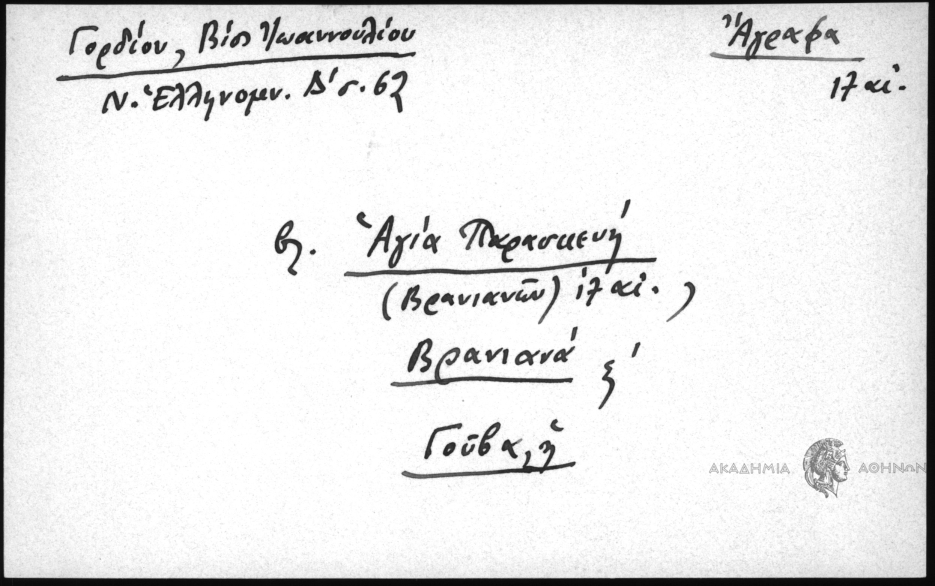 Γορδίου, Βίος Ἰωαννουλίου
Ν. Ἑλληνομν. Δ΄ σ. 62
Ἄγραφα
17 αἰ.
βλ. Ἁγία Παρασκευή
(Βρανιανῶν) 17 αἰ. ,
Βρανιανά
Γούβα, ἡ
ΑΚΑΔΗΜΙΑ ΑΘΗΝΩΝ